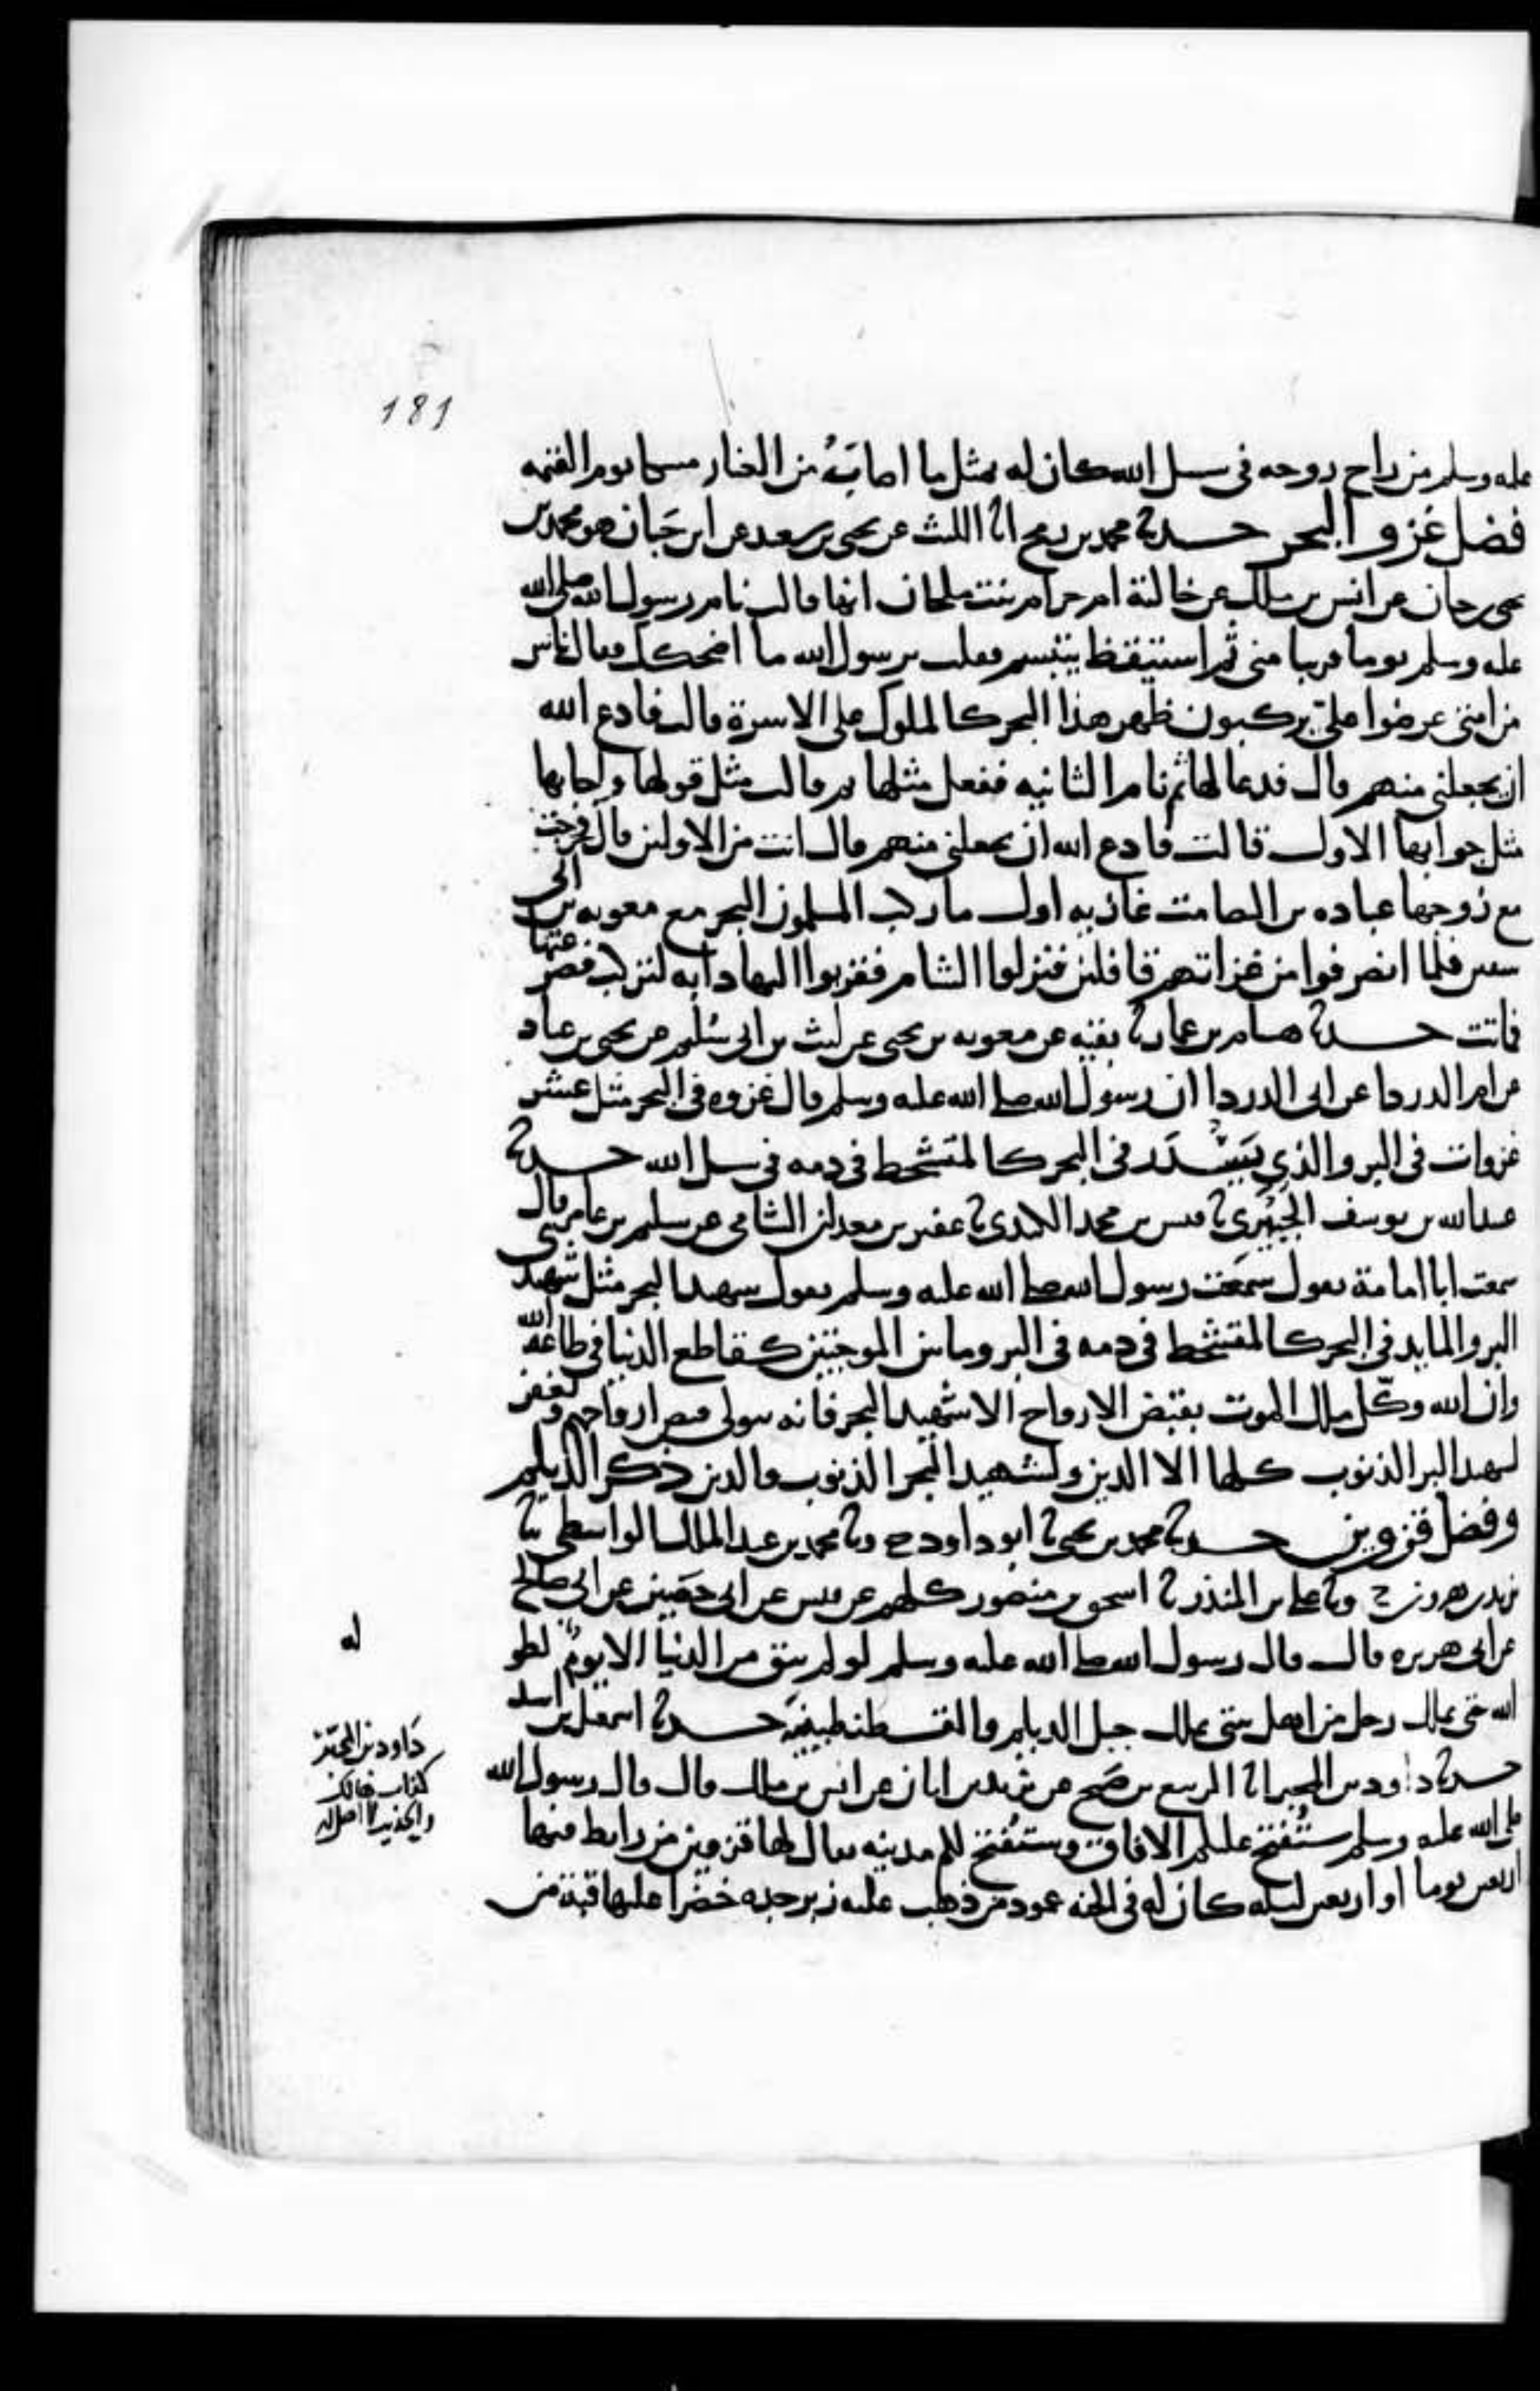 181
عليه وسلم من راح روحه في سبيل الله كان له بمثل ما اصابه من الغبار مسكا يوم القيمه
فضل غزو البحر حدثنا محمد بن رمح انا الليث عن يحيى بن سعيد عن ابن حبان هو محمد بن
يحيى بن حبان عن انس بن ملك عن خالته ام حرام بنت ملحان انها قالت نام رسول الله صلى الله
عليه وسلم يوما قريبا مني ثم استيقظ يبتسم فقلت يرسول الله ما اضحكك فقال ناس
من امتي عرضوا علي يركبون ظهر هذا البحر كالملوك على الاسرة قالت فادع الله
ان يجعلني منهم قال فدعا لها ثم نام الثانيه ففعل مثلها ثم قالت مثل قولها واجابها
مثل جوابها الاول قالت فادع الله ان يجعلني منهم قال انت من الاولين قال فخرجت
مع زوجها عباده بن الصامت غازيه اول ما ركب المسلمون البحر مع معويه بن ابي
سفين فلما انصرفوا من غزاتهم قافلين فنزلوا الشام فقربوا اليها دابه لتركب فصرعتها
فماتت حدثنا هشام بن عمار نا بقيه عن معويه بن يحيى عن ليث بن ابي سليم عن يحيى بن عباد
عن ام الدردا عن ابي الدردا ان رسول الله صلى الله عليه وسلم قال غزوه في البحر مثل عشر
غزوات في البر والذي يسدر في البحر كالمتشحط في دمه في سبيل الله حدثنا
عبيدالله بن يوسف الجبيري نا قيس بن محمد الكندي نا عفير بن معدان الشامي عن سليم بن عامر قال
سمعت ابا امامة يقول سمعت رسول الله صلى الله عليه وسلم يقول شهيد البحر مثل شهيدي
البر والمايد في البحر كالمتشحط في دمه في البر وما بين الموجتين كقاطع الدنيا في طاعة الله
وان الله وكل ملك الموت بقبض الارواح الا شهيد البحر فانه يتولى قبض ارواحهم ويغفر
لشهيد البر الذنوب كلها الا الدين ولشهيد البحر الذنوب والدين ذكر الديلم
وفضل قزوين حدثنا محمد بن يحيى نا ابو داود ح ونا محمد بن عبد الملك الواسطي نا
يزيد بن هرون ح ونا علي بن المنذر نا اسحق بن منصور كلهم عن قيس عن ابي حصين عن ابي صالح
عن ابي هريره قال قال رسول الله صلى الله عليه وسلم لو لم يبق من الدنيا الا يوم لطوله
الله حتى يملك رجل من اهل بيتي يملك جبل الديلم والقسطنطينية حدثنا اسمعيل بن اسد
حدثنا داود بن المحبر انا الربيع بن صبيح عن يزيد بن ابان عن انس بن ملك قال قال رسول الله
صلى الله عليه وسلم ستفتح عليكم الافاق وستفتح لكم مدينه يقال لها قزوين من رابط فيها
اربعين يوما او اربعين ليله كان له في الجنه عمود من ذهب عليه زبرجده خضرا عليها قبة من
له
داود بن المحبر
كذاب
والحديث لا اصل له